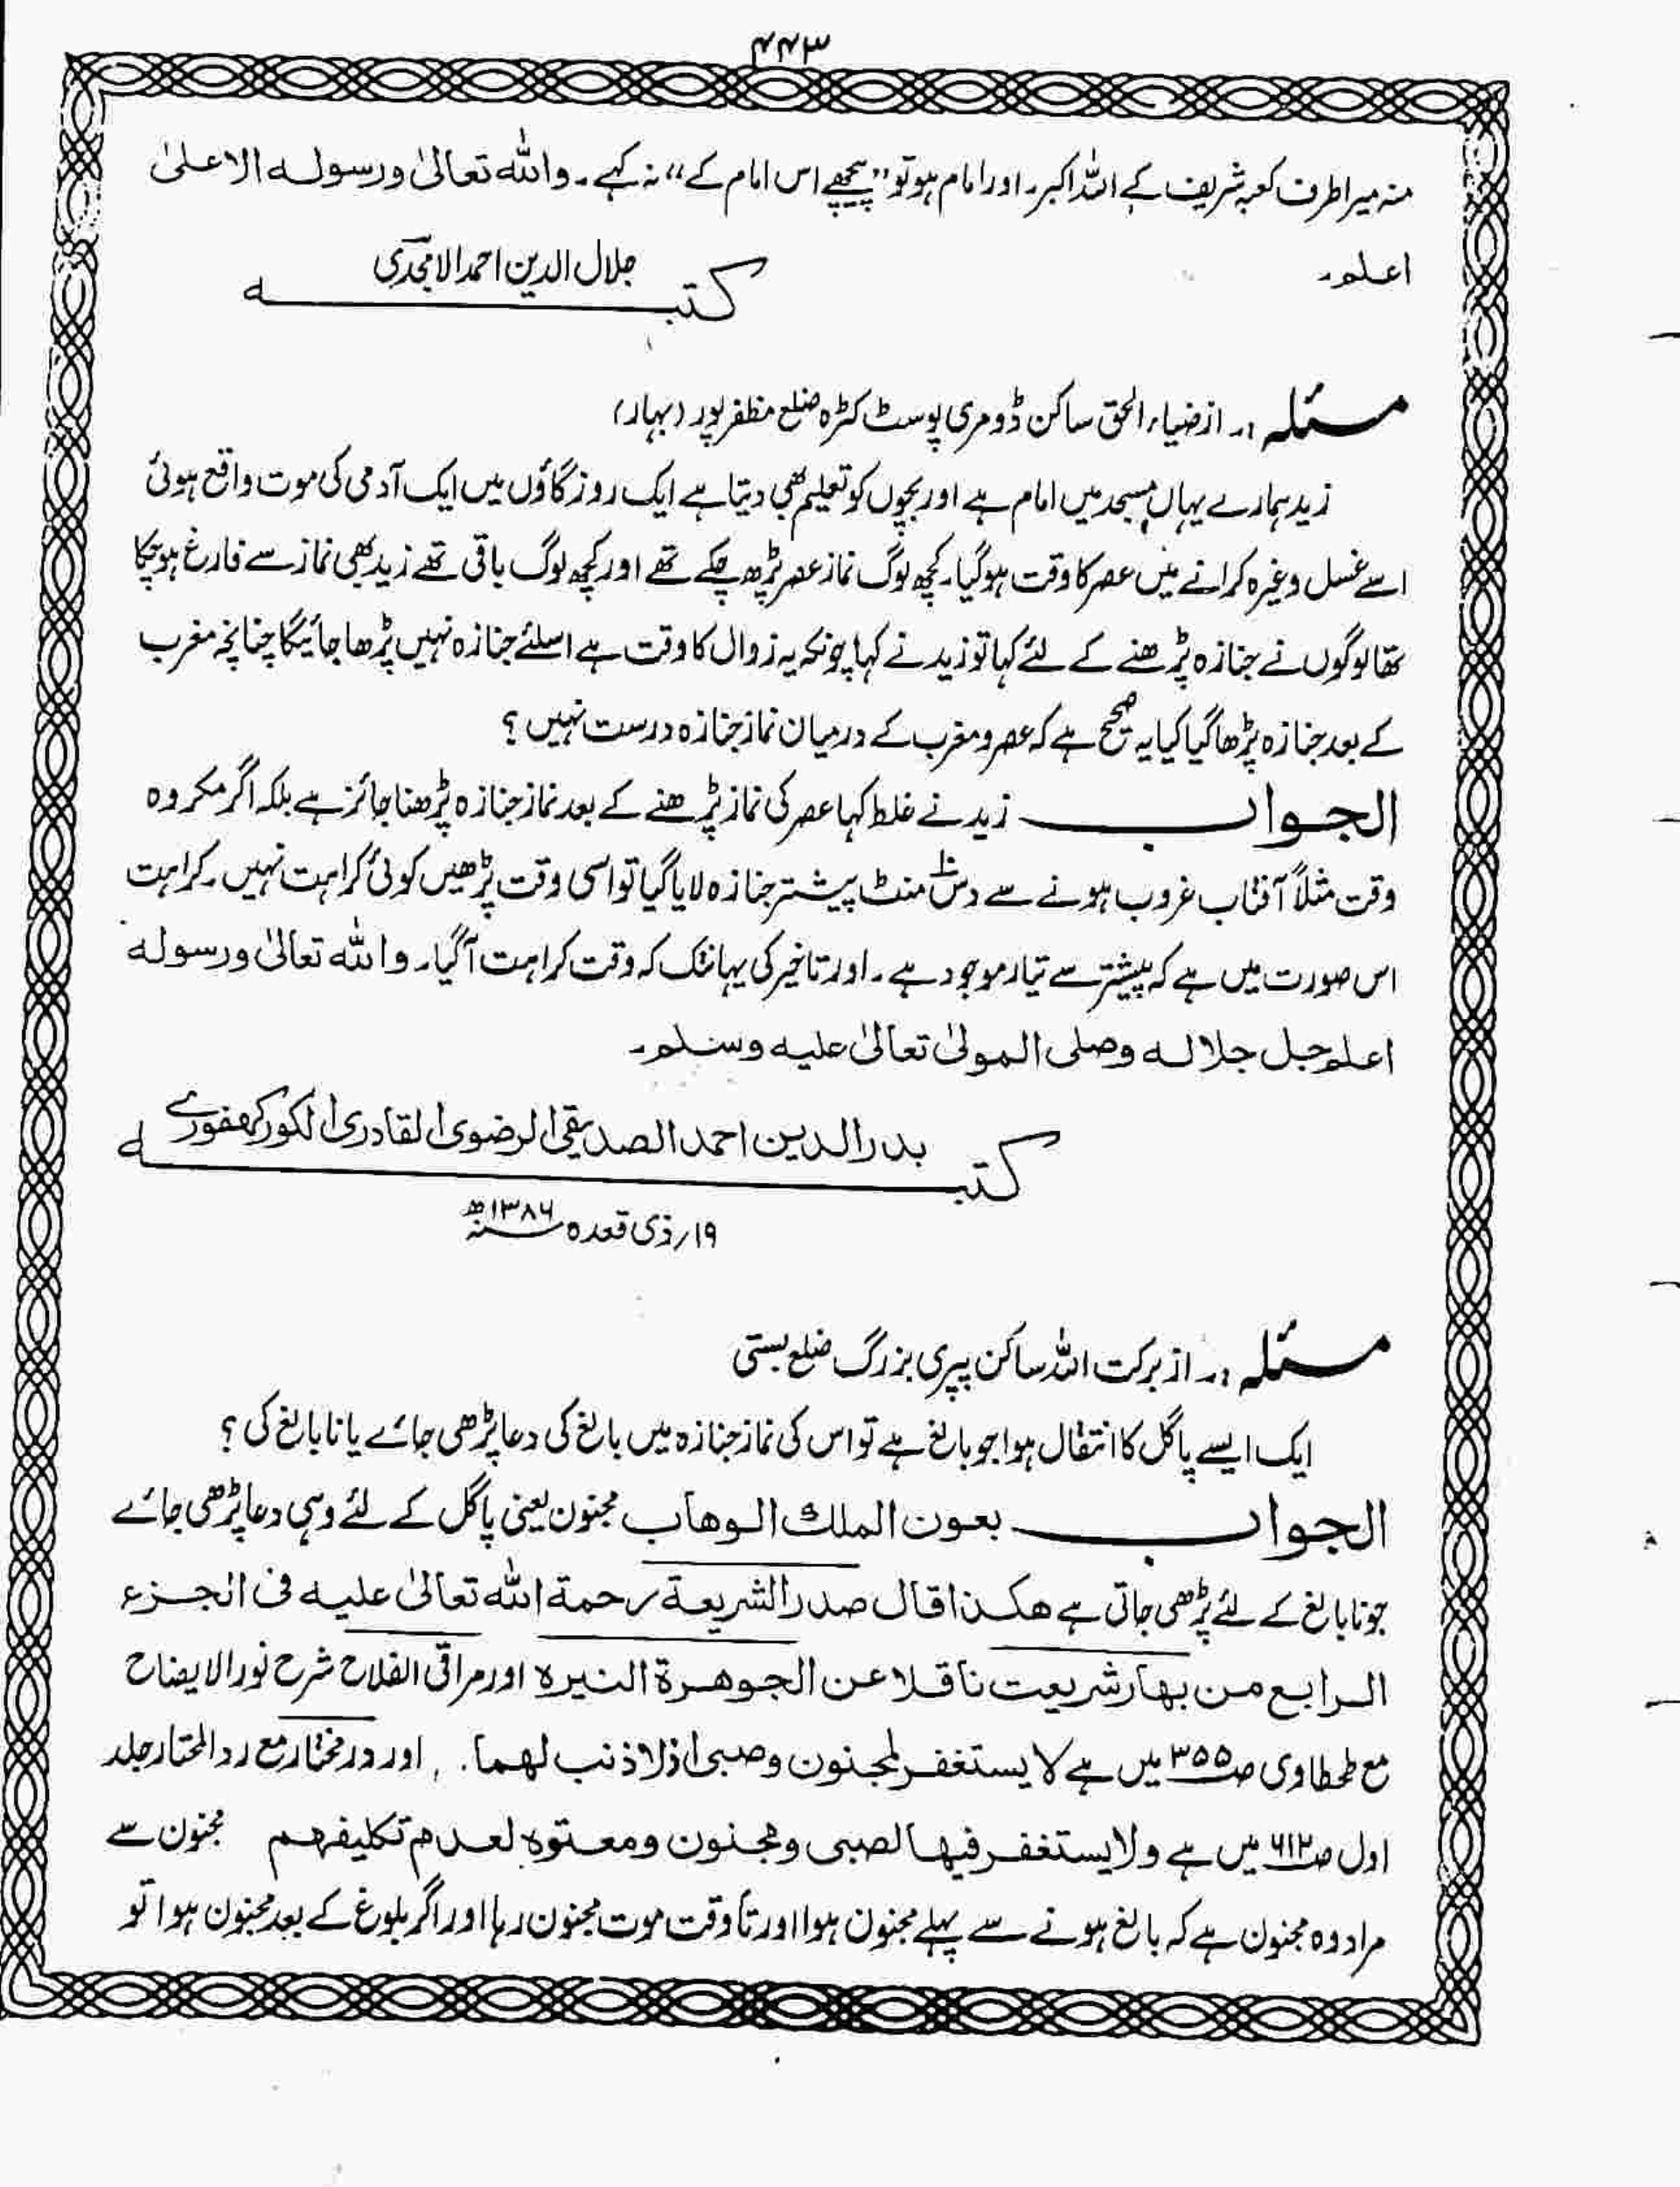 ۴۴۳
منہ میرا طرف کعبہ شریف کے اللہ اکبر۔ اور امام ہو تو ”پیچھے اس امام کے“ نہ کہے۔ واللہ تعالیٰ ورسولہ الاعلیٰ
اعلم۔
جلال الدین احمد الامجدی
کتبہ
مسئلہ:۔ از ضیاء الحق ساکن ڈومری پوسٹ کٹرہ ضلع مظفر پور (بہار)
زید ہمارے یہاں مسجد میں امام ہے اور بچوں کو تعلیم بھی دیتا ہے ایک روز گاؤں میں ایک آدمی کی موت واقع ہوئی
اسے غسل وغیرہ کرانے میں عصر کا وقت ہوگیا۔ کچھ لوگ نماز عصر پڑھ چکے تھے اور کچھ لوگ باقی تھے زید بھی نماز سے فارغ ہوچکا
تھا لوگوں نے جنازہ پڑھنے کے لئے کہا تو زید نے کہا چونکہ یہ زوال کا وقت ہے اسلئے جنازہ نہیں پڑھا جائیگا چنانچہ مغرب
کے بعد جنازہ پڑھا گیا کیا یہ صحیح ہے کہ عصر و مغرب کے درمیان نماز جنازہ درست نہیں؟
الجواب زید نے غلط کہا عصر کی نماز پڑھنے کے بعد نماز جنازہ پڑھنا جائز ہے بلکہ اگر مکروہ
وقت مثلاً آفتاب غروب ہونے سے دس۱۰ منٹ پیشتر جنازہ لایا گیا تو اسی وقت پڑھیں کوئی کراہت نہیں۔ کراہت
اس صورت میں ہے کہ پیشتر سے تیار موجود ہے۔ اور تاخیر کی یہانتک کہ وقت کراہت آگیا۔ واللہ تعالیٰ ورسولہ
اعلم جل جلالہ وصلی المولیٰ تعالیٰ علیہ وسلم۔
بدر الدین احمد الصدیقی الرضوی القادری الگورکھفوری
کتبہ
۱۹؍ ذی قعدہ سنہ ۱۳۸۶ھ
مسئلہ:۔ از برکت اللہ ساکن پپری بزرگ ضلع بستی
ایک ایسے پاگل کا انتقال ہوا جو بالغ ہے تو اس کی نماز جنازہ میں بالغ کی دعا پڑھی جائے یا نابالغ کی؟
الجواب بعون الملک الوھاب مجنون یعنی پاگل کے لئے وہی دعا پڑھی جائے
جو نابالغ کے لئے پڑھی جاتی ہے ھکذا قال صدر الشریعۃ رحمۃ اللہ تعالیٰ علیہ فی الجزء
الرابع من بہار شریعت ناقلا عن الجوھرۃ النیرہ اور مراقی الفلاح شرح نور الایضاح
مع طحطاوی ص۳۵۵ میں ہے لا یستغفر لمجنون وصبی اذ لا ذنب لھما۔ اور در مختار مع رد المحتار جلد
اول ص۶۱۲ میں ہے ولا یستغفر فیھا لصبی ومجنون ومعتوہ لعدم تکلیفھم مجنون سے
مراد وہ مجنون ہے کہ بالغ ہونے سے پہلے مجنون ہوا اور تا وقت موت مجنون رہا اور اگر بلوغ کے بعد مجنون ہوا تو